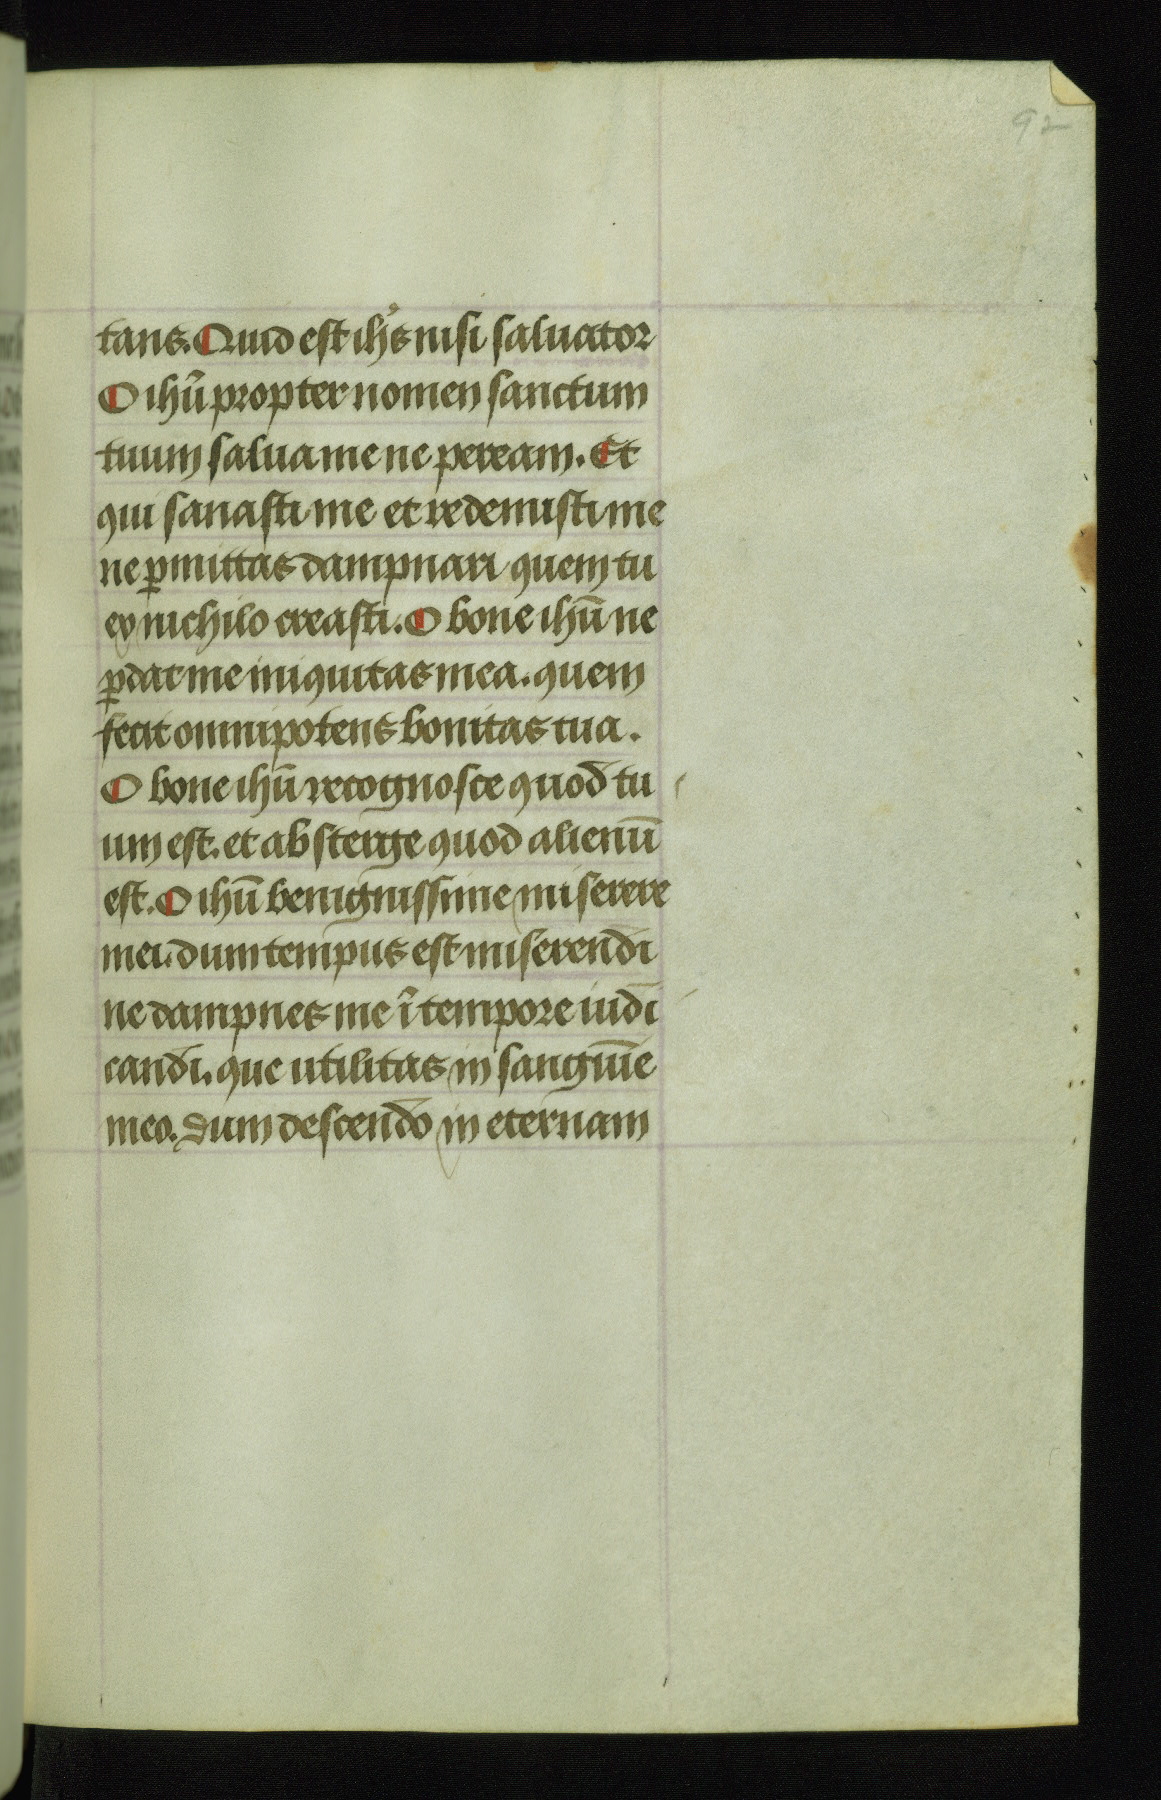 92
tans. Quid est ihs nisi saluator
O ihū propter nomen sanctum
tuum salua me ne peream. Et
qui sanasti me et redemisti me
ne ꝑmittas dampnari quem tu
ex nichilo creasti. O bone ihū ne
ꝑdat me iniquitas mea. quem
fecit omnipotens bonitas tua.
O bone ihū recognosce quod tu
um est. et absterge quod alienū
est. O ihū benignissime miserere
mei. dum tempus est miserendi
ne dampnes me ī tempore iudi
candi. que utilitas in sanguīe
meo. dum descendo in eternam